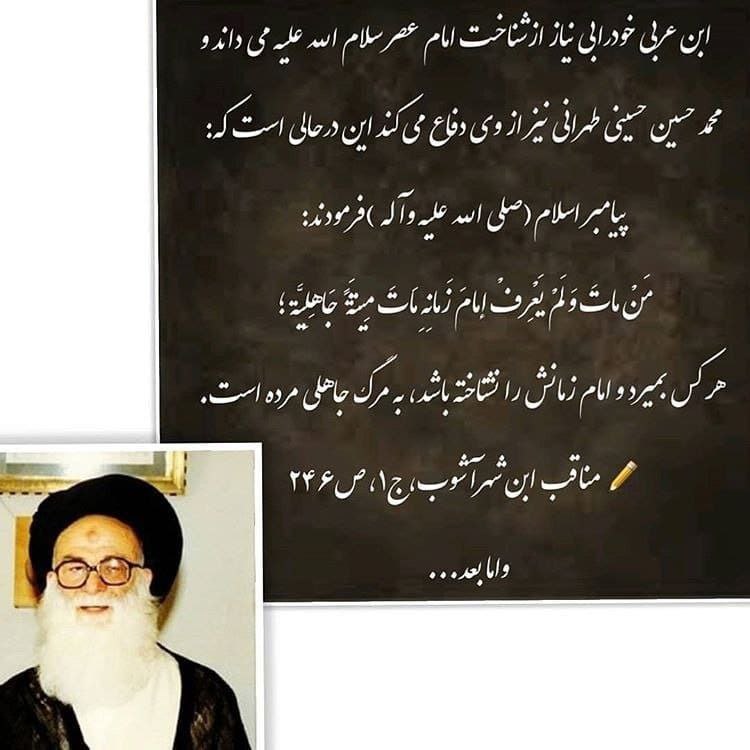 ابن عربی خود را بی نیاز از شناخت امام عصر سلام الله علیه می داند و
محمد حسین حسینی طهرانی نیز از وی دفاع می کند این در حالی است که:
پیامبر اسلام (صلی الله علیه و آله) فرمودند:
مَنْ ماتَ وَلَمْ يَعْرِفْ إمامَ زَمَانِهِ مَاتَ مِيتَةً جَاهِلِيَّة؛
هر کس بمیرد و امام زمانش را نشناخته باشد، به مرگ جاهلی مرده است.
✏️ مناقب ابن شهر آشوب، ج۱، ص۲۴۶
و اما بعد...